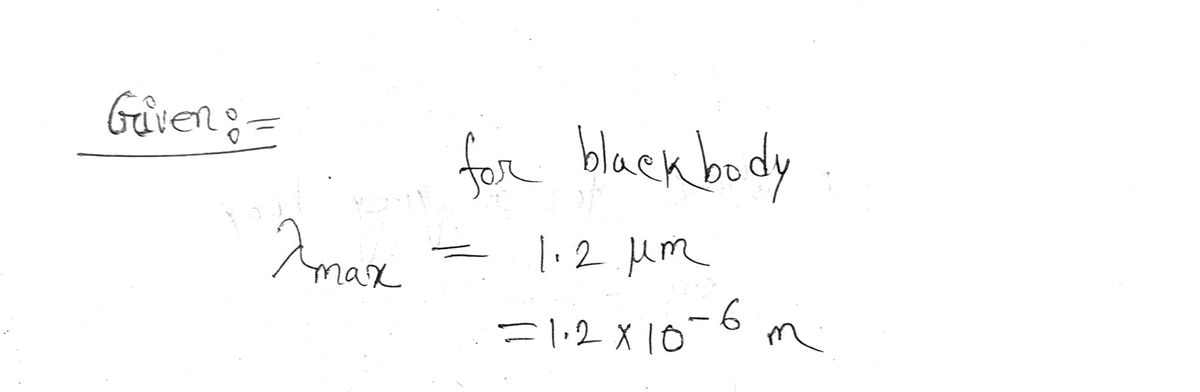 Given :=
for blackbody
λmax = 1.2 μm
= 1.2 × 10⁻⁶ m